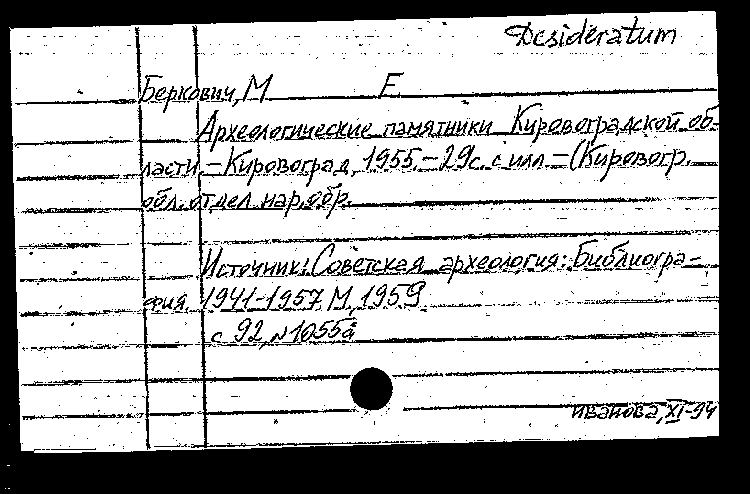 Desideratum
Беркович, М Е.
Археологические памятники Кировоградской об-
ласти. – Кировоград, 1955. – 29с. с илл – (Кировогр.
обл. отдел нар. обр.
Источник: Советская археология: Библиогра-
фия. 1941-1957. М, 1959.
с 92, №1055а
Иванова, XI-94